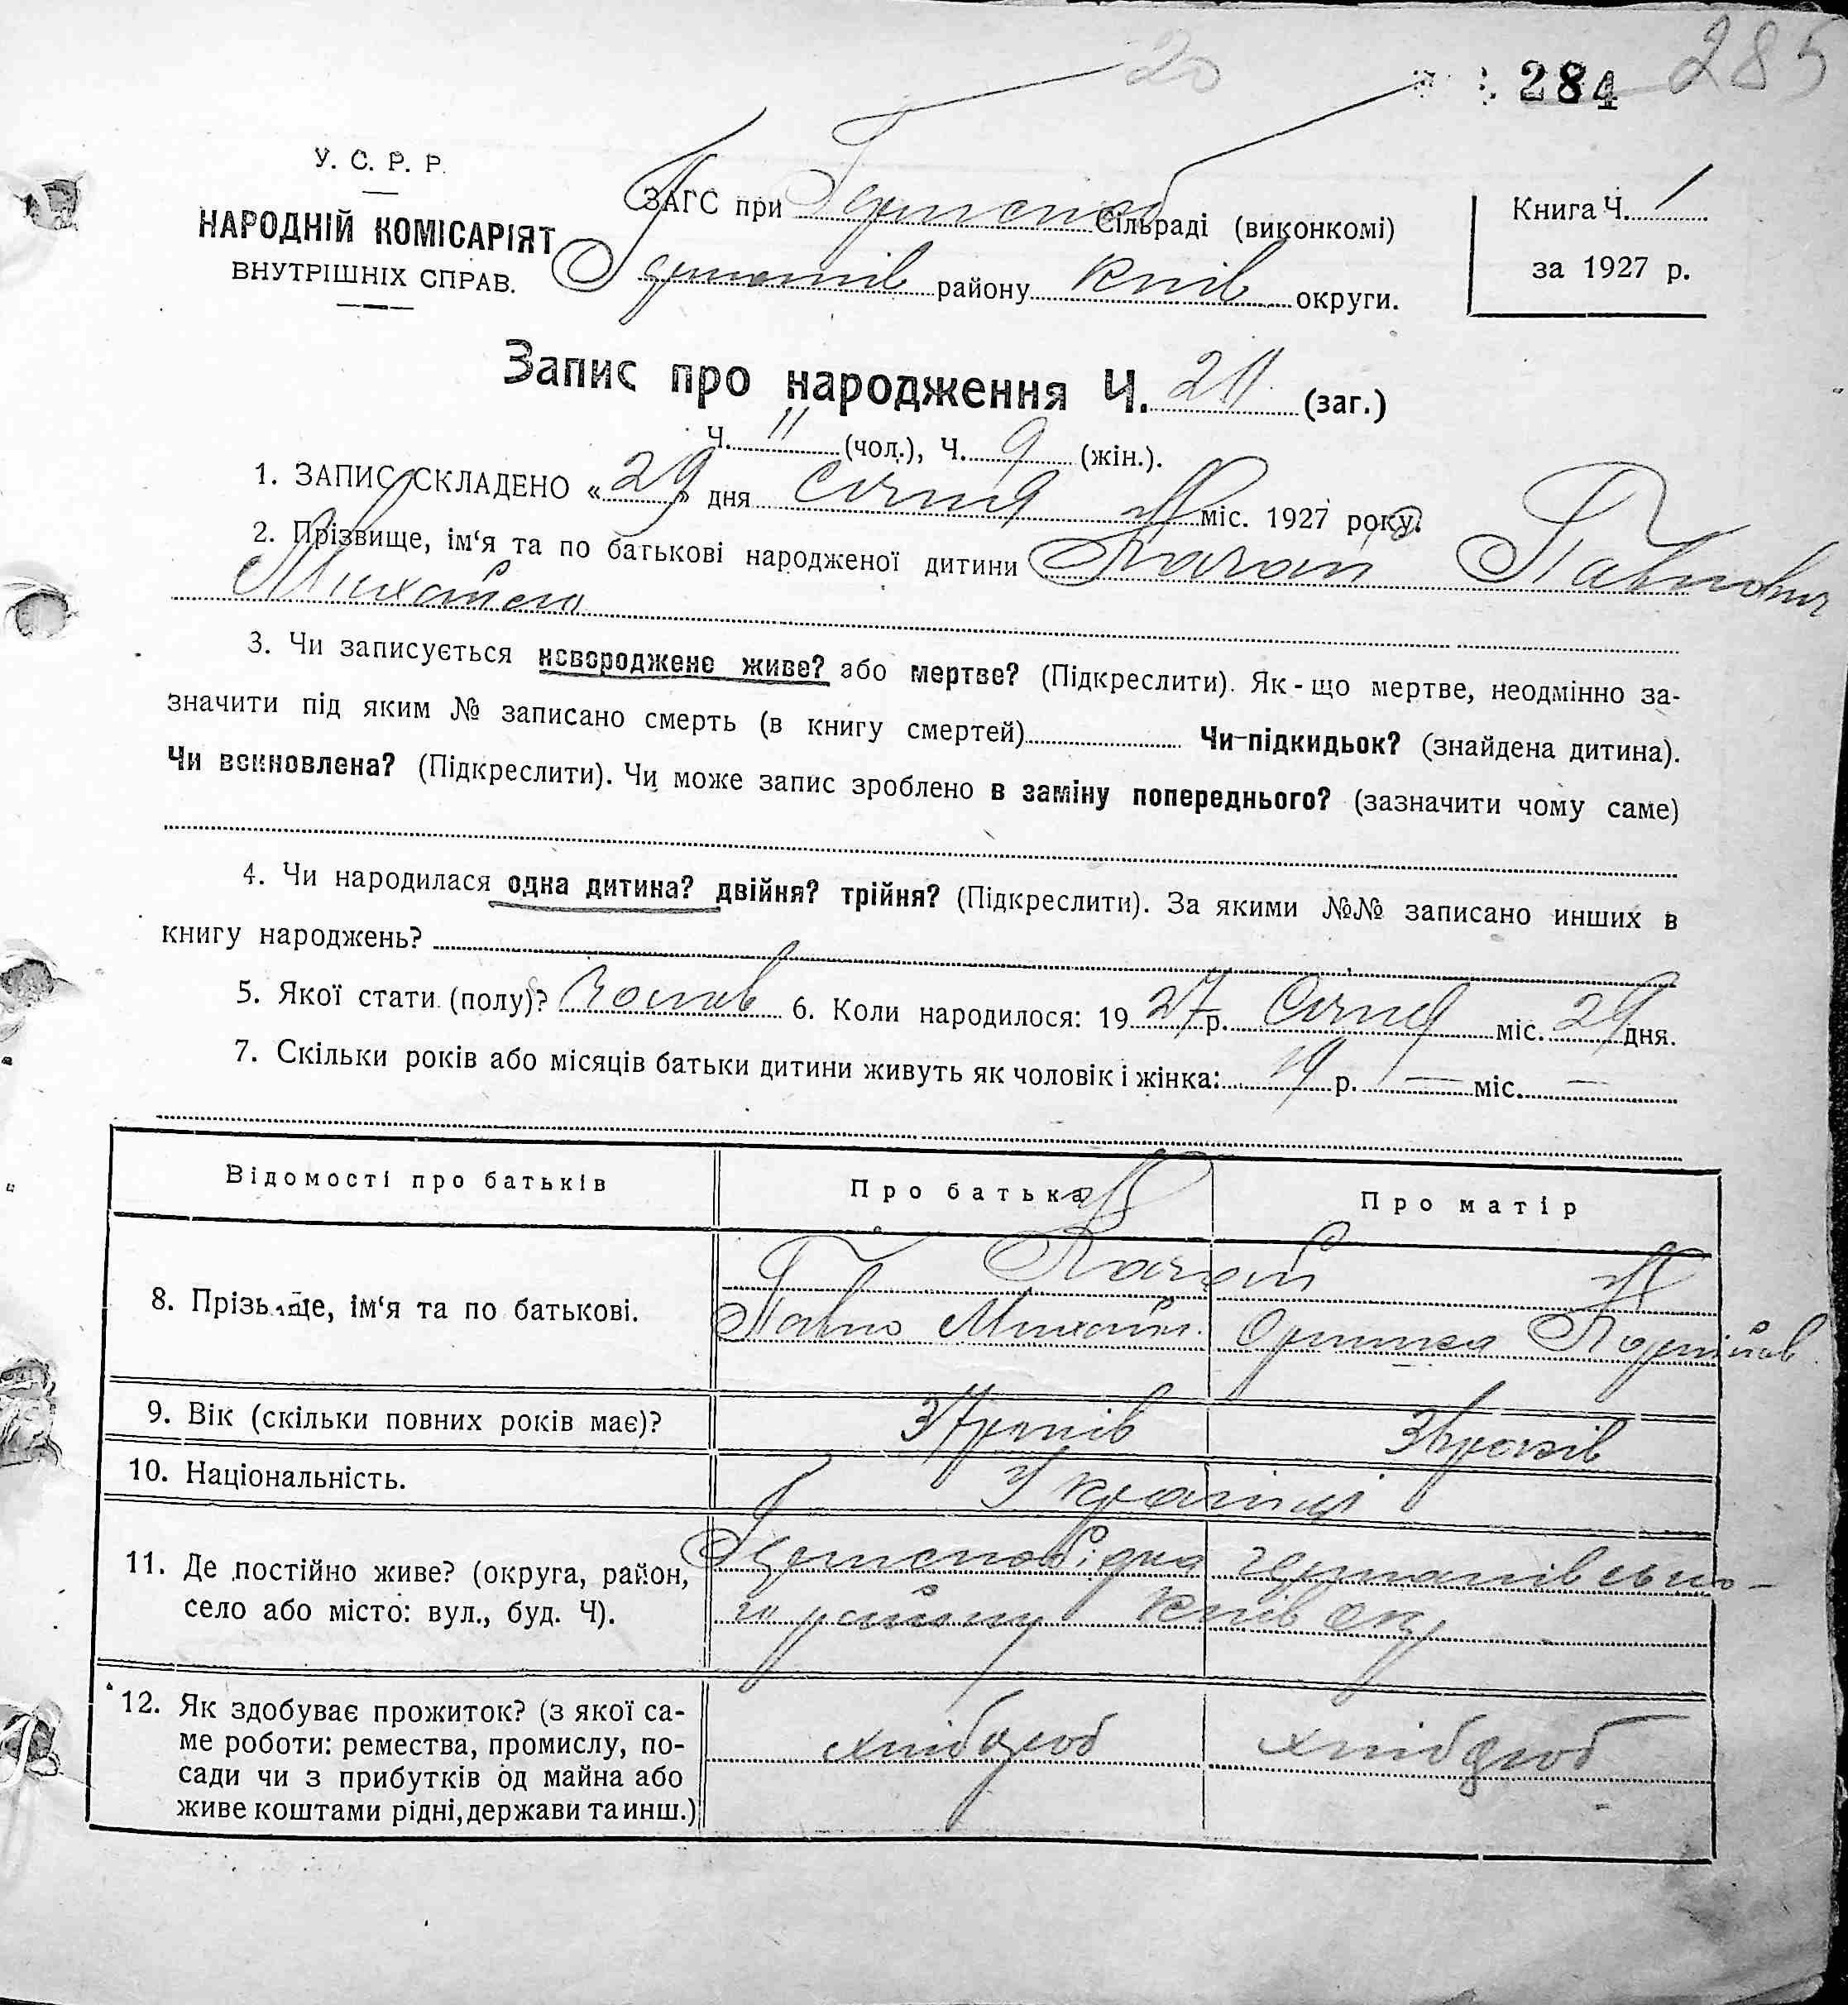 20
284 285
У. С. Р. Р.
НАРОДНІЙ КОМІСАРІЯТ
ВНУТРІШНІХ СПРАВ.
ЗАГС при Сільраді (виконкомі)
району Київ округи.
Книга Ч. 1
за 1927 р.
Запис про народження Ч. (заг.)
Ч. 11 (чол.), Ч. 9 (жін.).
1. ЗАПИС СКЛАДЕНО «29» дня Січня міс. 1927 року.
2. Прізвище, ім‘я та по батькові народженої дитини Качан Павлович
Михайло
3. Чи записується новороджене живе? або мертве? (Підкреслити). Як-що мертве, неодмінно за-
значити під яким № записано смерть (в книгу смертей) Чи-підкидьок? (знайдена дитина).
Чи всиновлена? (Підкреслити). Чи може запис зроблено в заміну попереднього? (зазначити чому саме)
4. Чи народилася одна дитина? двійня? трійня? (Підкреслити). За якими №№ записано инших в
книгу народжень?
5. Якої стати (полу)? 6. Коли народилося: 1927 р. Січня міс. 29 дня.
7. Скільки років або місяців батьки дитини живуть як чоловік і жінка: 19 р. — міс. —
Відомості про батьків Про батька Про матір
8. Прізвище, ім‘я та по батькові.
Павло Михайл.
9. Вік (скільки повних років має)? 37 років 36 років
10. Національність. Українці
11. Де постійно живе? (округа, район,
село або місто: вул., буд. Ч).
го району Київ окр
12. Як здобуває прожиток? (з якої са-
ме роботи: ремества, промислу, по-
сади чи з прибутків од майна або
живе коштами рідні, держави та инш.)
хлібороб хлібороб